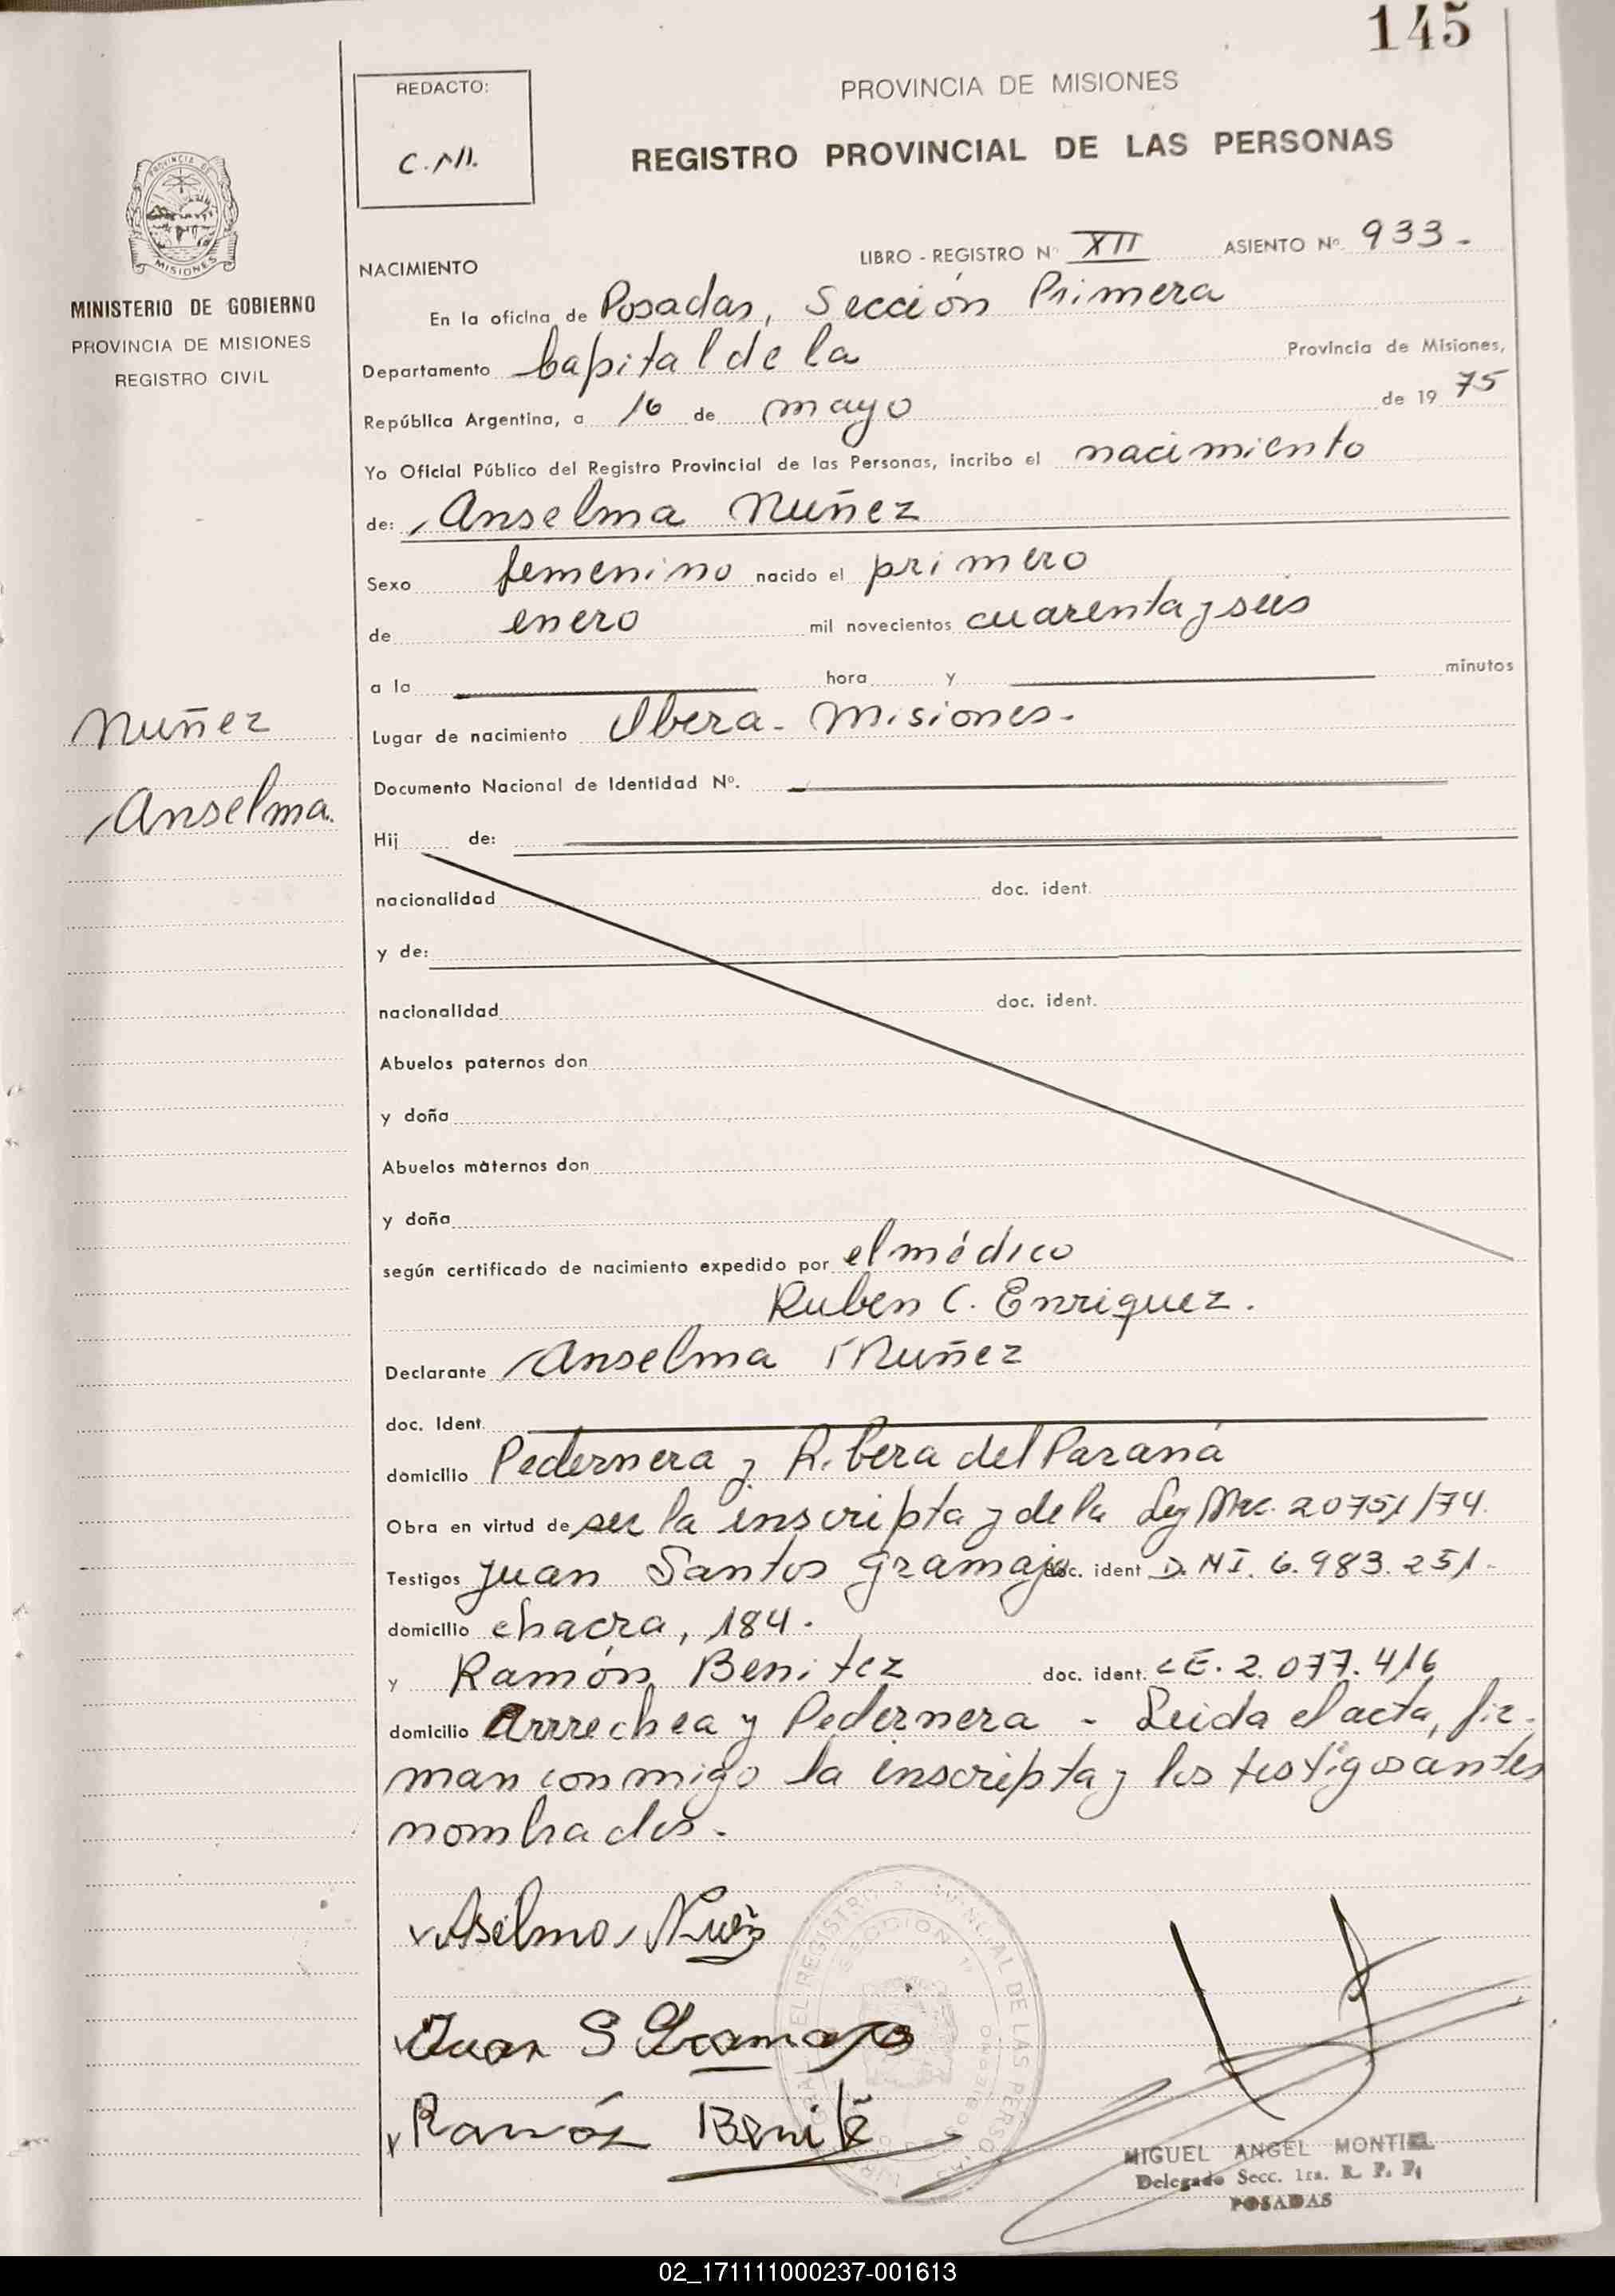 145
REDACTO:
C.M.
PROVINCIA DE MISIONES
REGISTRO PROVINCIAL DE LAS PERSONAS
PROVINCIA DE
MISIONES
MINISTERIO DE GOBIERNO
PROVINCIA DE MISIONES
REGISTRO CIVIL
NACIMIENTO
LIBRO - REGISTRO Nº XII ASIENTO Nº 933-
En la oficina de Posadas, Sección Primera
Departamento Capital de la Provincia de Misiones,
República Argentina, a 16 de mayo de 1975
Yo Oficial Público del Registro Provincial de las Personas, incribo el nacimiento
de: Anselma Nuñez
Sexo femenino nacido el primero
de enero mil novecientos cuarenta y seis
a la hora y minutos
Nuñez
Anselma.
Lugar de nacimiento Obera - Misiones -
Documento Nacional de Identidad Nº.
Hij de:
nacionalidad doc. ident.
y de:
nacionalidad doc. ident.
Abuelos paternos don
y doña
Abuelos maternos don
y doña
según certificado de nacimiento expedido por el médico
Ruben C. Enriquez.
Declarante Anselma Nuñez
doc. Ident.
domicilio Pedernera y Ribera del Paraná
Obra en virtud de ser la inscripta y de la Ley Nac. 20751/74.
Testigos Juan Santos Gramajo doc. ident D.N.I. 6.983.251-
domicilio chacra, 184.
y Ramón Benitez doc. ident. L.E. 2.077.416
domicilio Arrrechea y Pedernera - Leida el acta, fir-
man conmigo la inscripta y los testigos antes
nombrados.-
Aselmo Nuez
Juan S Gramajo
Ramón Benitez
SECCION 1º
MIGUEL ANGEL MONTIEL
Delegado Secc. 1ra. R. P. P.
POSADAS
02_171111000237-001613